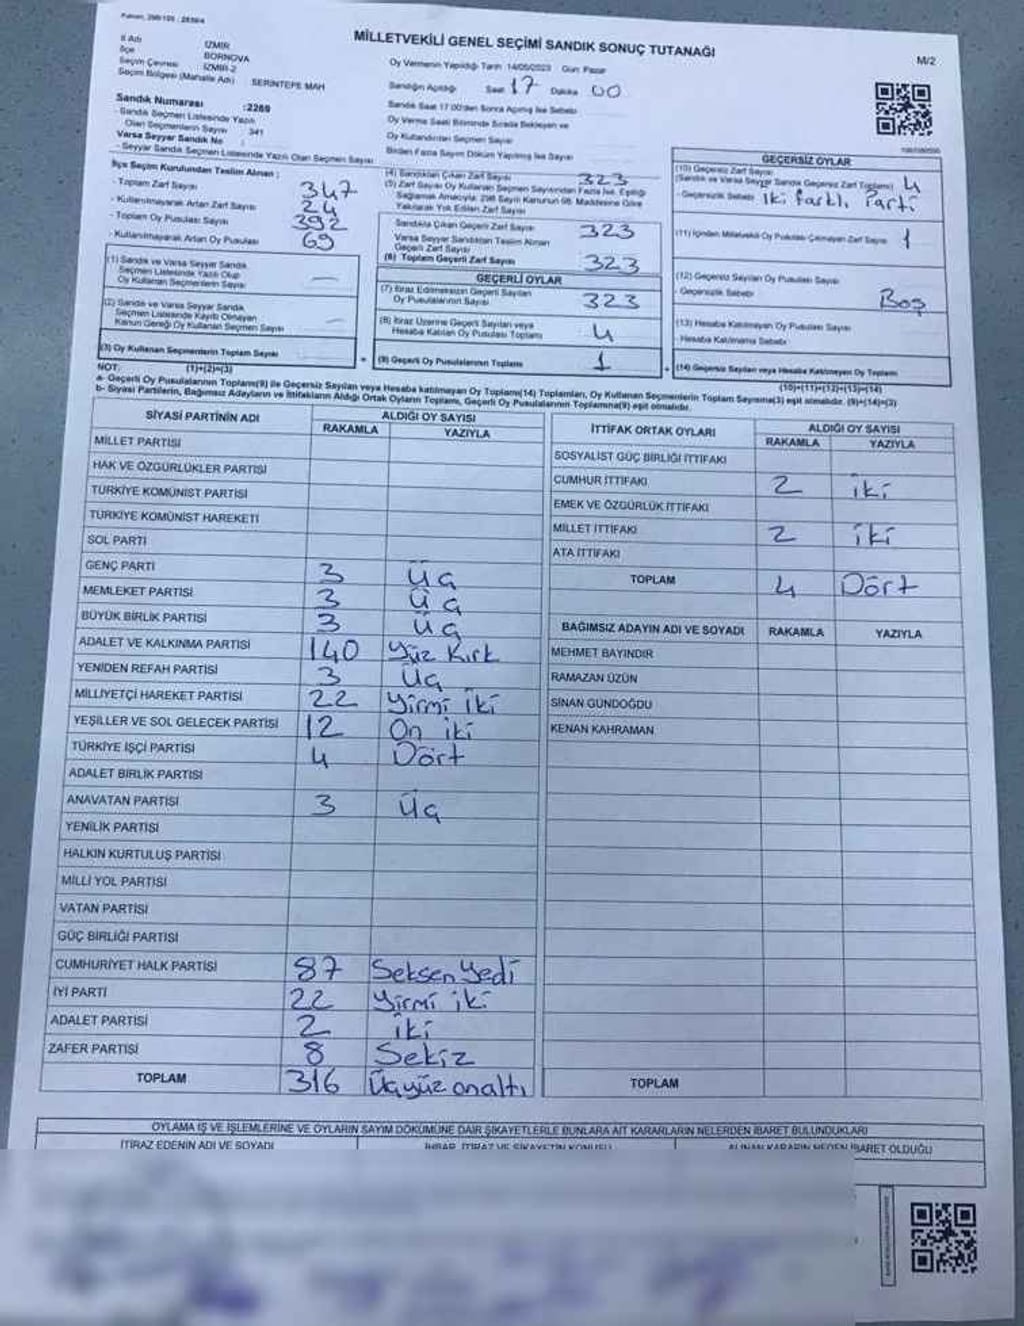 MİLLETVEKİLİ GENEL SEÇİMİ SANDIK SONUÇ TUTANAĞI
M/2
İl Adı İZMİR
İlçe BORNOVA
Seçim Çevresi İZMİR-2
Seçim Bölgesi (Mahalle Adı) SERİNTEPE MAH
Sandık Numarası :2269
- Sandık Seçmen Listesinde Yazılı
Olan Seçmenlerin Sayısı 341
Varsa Seyyar Sandık No :
- Seyyar Sandık Seçmen Listesinde Yazılı Olan Seçmen Sayısı
Oy Vermenin Yapıldığı Tarih 14/05/2023 Gün Pazar
Sandığın Açıldığı Saat 17 Dakika 00
Sandık Saat 17.00'den Sonra Açılmış İse Sebebi
Oy Verme Saati Bitiminde Sırada Bekleyen ve
Oy Kullandırılan Seçmen Sayısı
Birden Fazla Sayım Döküm Yapılmış İse Sayısı
İlçe Seçim Kurulundan Teslim Alınan :
- Toplam Zarf Sayısı 347
- Kullanılmayarak Artan Zarf Sayısı 24
- Toplam Oy Pusulası Sayısı 392
- Kullanılmayarak Artan Oy Pusulası 69
(1) Sandık ve Varsa Seyyar Sandık
Seçmen Listesinde Yazılı Olup
Oy Kullanan Seçmenlerin Sayısı —
(2) Sandık ve Varsa Seyyar Sandık
Seçmen Listesinde Kayıtlı Olmayan
Kanun Gereği Oy Kullanan Seçmen Sayısı —
(3) Oy Kullanan Seçmenlerin Toplam Sayısı
(1)+(2)=(3)
(4) Sandıktan Çıkan Zarf Sayısı 323
(5) Zarf Sayısı Oy Kullanan Seçmen Sayısından Fazla İse, Eşitliği
Sağlamak Amacıyla, 298 Sayılı Kanunun 98. Maddesine Göre
Yakılarak Yok Edilen Zarf Sayısı
Sandıkta Çıkan Geçerli Zarf Sayısı 323
Varsa Seyyar Sandıktan Teslim Alınan
Geçerli Zarf Sayısı
(6) Toplam Geçerli Zarf Sayısı 323
GEÇERLİ OYLAR
(7) İtiraz Edilmeksizin Geçerli Sayılan
Oy Pusulalarının Sayısı 323
(8) İtiraz Üzerine Geçerli Sayılan veya
Hesaba Katılan Oy Pusulası Toplamı 4
(9) Geçerli Oy Pusulalarının Toplamı 1
GEÇERSİZ OYLAR
(10) Geçersiz Zarf Sayısı
(Sandık ve Varsa Seyyar Sandık Geçersiz Zarf Toplamı) 4
- Geçersizlik Sebebi İki farklı Parti
(11) İçinden Milletvekili Oy Pusulası Çıkmayan Zarf Sayısı 1
(12) Geçersiz Sayılan Oy Pusulası Sayısı
- Geçersizlik Sebebi Boş
(13) Hesaba Katılmayan Oy Pusulası Sayısı
- Hesaba Katılmama Sebebi
(14) Geçersiz Sayılan veya Hesaba Katılmayan Oy Toplamı
(10)+(11)+(12)+(13)=(14)
NOT:
a- Geçerli Oy Pusulalarının Toplamı(9) ile Geçersiz Sayılan veya Hesaba katılmayan Oy Toplamı(14) Toplamları, Oy Kullanan Seçmenlerin Toplam Sayısına(3) eşit olmalıdır. (9)+(14)=(3)
b- Siyasi Partilerin, Bağımsız Adayların ve İttifakların Aldığı Ortak Oyların Toplamı, Geçerli Oy Pusulalarının Toplamına(9) eşit olmalıdır.
SİYASİ PARTİNİN ADI ALDIĞI OY SAYISI
RAKAMLA YAZIYLA
MİLLET PARTİSİ
HAK VE ÖZGÜRLÜKLER PARTİSİ
TÜRKİYE KOMÜNİST PARTİSİ
TÜRKİYE KOMÜNİST HAREKETİ
SOL PARTİ
GENÇ PARTİ 3 Üç
MEMLEKET PARTİSİ 3 Üç
BÜYÜK BİRLİK PARTİSİ 3 Üç
ADALET VE KALKINMA PARTİSİ 140 Yüz Kırk
YENİDEN REFAH PARTİSİ 3 Üç
MİLLİYETÇİ HAREKET PARTİSİ 22 Yirmi iki
YEŞİLLER VE SOL GELECEK PARTİSİ 12 On iki
TÜRKİYE İŞÇİ PARTİSİ 4 Dört
ADALET BİRLİK PARTİSİ
ANAVATAN PARTİSİ 3 Üç
YENİLİK PARTİSİ
HALKIN KURTULUŞ PARTİSİ
MİLLİ YOL PARTİSİ
VATAN PARTİSİ
GÜÇ BİRLİĞİ PARTİSİ
CUMHURİYET HALK PARTİSİ 87 Seksen Yedi
İYİ PARTİ 22 Yirmi iki
ADALET PARTİSİ 2 İki
ZAFER PARTİSİ 8 Sekiz
TOPLAM 316 Üçyüz onaltı
İTTİFAK ORTAK OYLARI ALDIĞI OY SAYISI
RAKAMLA YAZIYLA
SOSYALİST GÜÇ BİRLİĞİ İTTİFAKI
CUMHUR İTTİFAKI 2 İki
EMEK VE ÖZGÜRLÜK İTTİFAKI
MİLLET İTTİFAKI 2 İki
ATA İTTİFAKI
TOPLAM 4 Dört
BAĞIMSIZ ADAYIN ADI VE SOYADI RAKAMLA YAZIYLA
MEHMET BAYINDIR
RAMAZAN ÜZÜN
SİNAN GÜNDOĞDU
KENAN KAHRAMAN
TOPLAM
OYLAMA İŞ VE İŞLEMLERİNE VE OYLARIN SAYIM DÖKÜMÜNE DAİR ŞİKAYETLERLE BUNLARA AİT KARARLARIN NELERDEN İBARET BULUNDUKLARI
İTİRAZ EDENİN ADI VE SOYADI İHBAR, İTİRAZ VE ŞİKAYETİN KONUSU ALINAN KARARIN NEDEN İBARET OLDUĞU